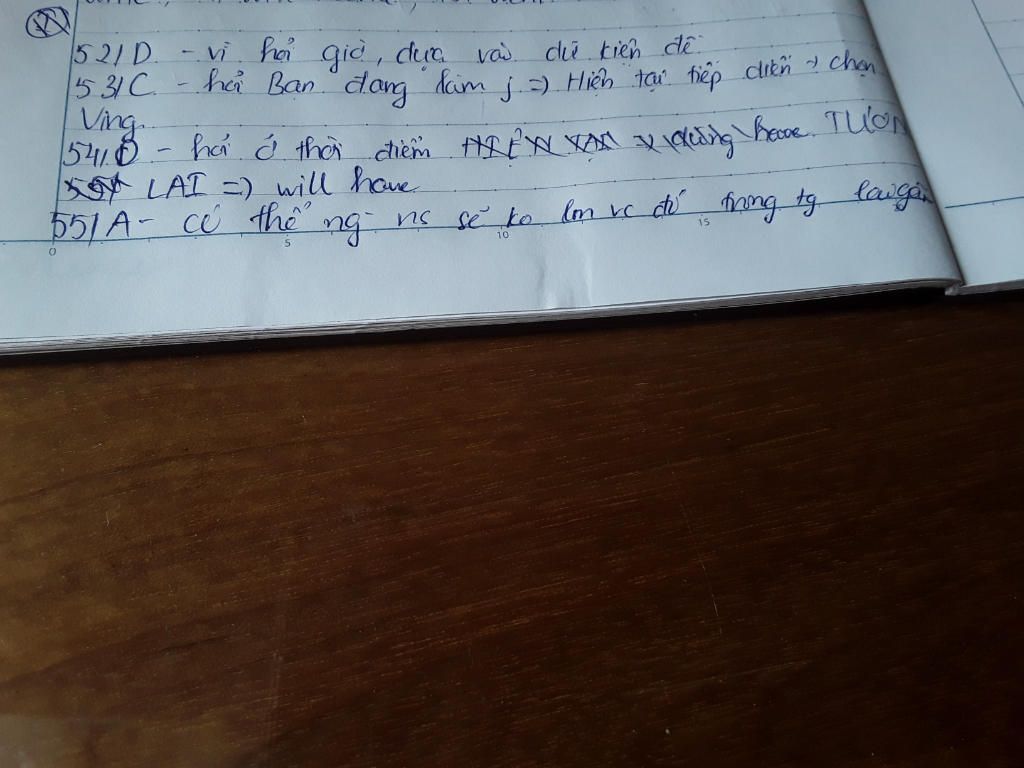 52/ D - vì hỏi giờ, dựa vào dữ kiện đề.
53/ C - hỏi Bạn đang làm j => Hiện tại tiếp diễn → chọn
Ving.
54/ D - hỏi ở thời điểm TƯƠN
LAI => will have
55/ A - có thể ng- nc sẽ ko lm vc đó trong tg
0 5 10 15